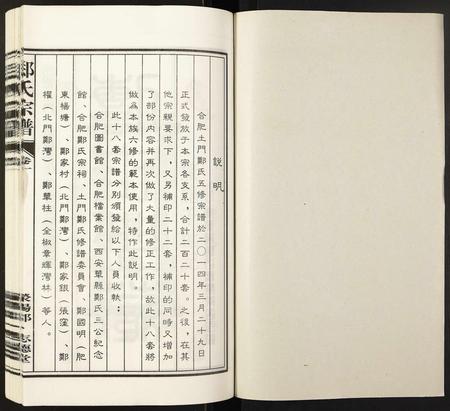 說明
合肥土門鄭氏五修宗譜於二〇一四年三月二十九日
正式發放于本宗各支系，合計二百二十套。之後，在其
他宗親要求下，又另補印二十二套，補印的同時又增加
了部份內容并再次做了大量的修正工作，故此十八套將
做為本族六修的範本使用，特作此說明。
此十八套宗譜分別頒發給以下人員收執：
合肥圖書館、合肥檔案館、西安華縣鄭氏三公紀念
館、合肥鄭氏宗祠、土門鄭氏修譜委員會、鄭國明（肥
東楊塘）、鄭家村（北門鄭灣）、鄭家銀（張窪）、鄭
權（北門鄭灣）、鄭華柱（全椒章輝灣林）等人。
鄭氏宗譜
卷一
滎陽郡·志德堂